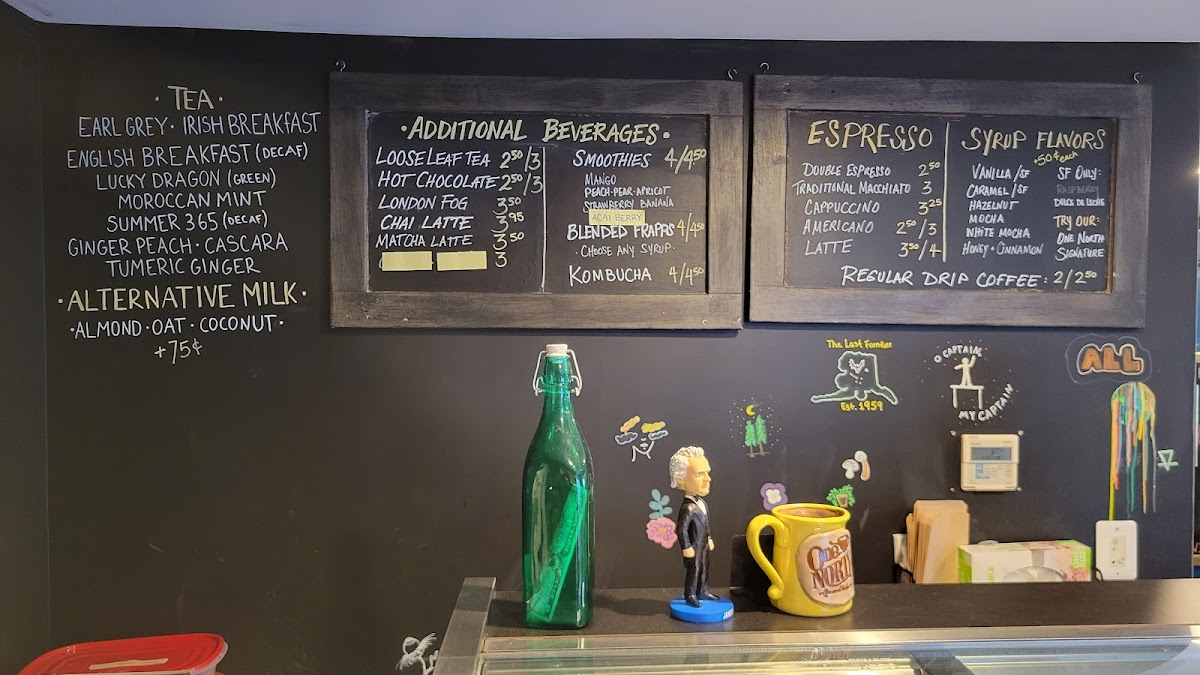 · TEA ·
EARL GREY · IRISH BREAKFAST
ENGLISH BREAKFAST (DECAF)
LUCKY DRAGON (GREEN)
MOROCCAN MINT
SUMMER 365 (DECAF)
GINGER PEACH · CASCARA
TUMERIC GINGER
· ALTERNATIVE MILK ·
· ALMOND · OAT · COCONUT ·
+75¢
· ADDITIONAL BEVERAGES ·
LOOSE LEAF TEA 2⁵⁰/3
HOT CHOCOLATE 2⁵⁰/3
LONDON FOG 3⁵⁰
CHAI LATTE 3⁹⁵
MATCHA LATTE 3⁵⁰
3
SMOOTHIES 4/4⁵⁰
MANGO
PEACH·PEAR·APRICOT
STRAWBERRY BANANA
ACAI BERRY
BLENDED FRAPPS 4/4⁵⁰
· CHOOSE ANY SYRUP ·
KOMBUCHA 4/4⁵⁰
ESPRESSO
DOUBLE ESPRESSO 2⁵⁰
TRADITIONAL MACCHIATO 3
CAPPUCCINO 3²⁵
AMERICANO 2⁵⁰/3
LATTE 3⁵⁰/4
SYRUP FLAVORS
+50¢ each
VANILLA/SF
CARAMEL/SF
HAZELNUT
MOCHA
WHITE MOCHA
HONEY · CINNAMON
SF ONLY:
RASPBERRY
DULCE DE LECHE
TRY OUR:
ONE NORTH
SIGNATURE
REGULAR DRIP COFFEE: 2/2⁵⁰
The Last Frontier
Est. 1959
O CAPTAIN
MY CAPTAIN
ALL
One
NORTH